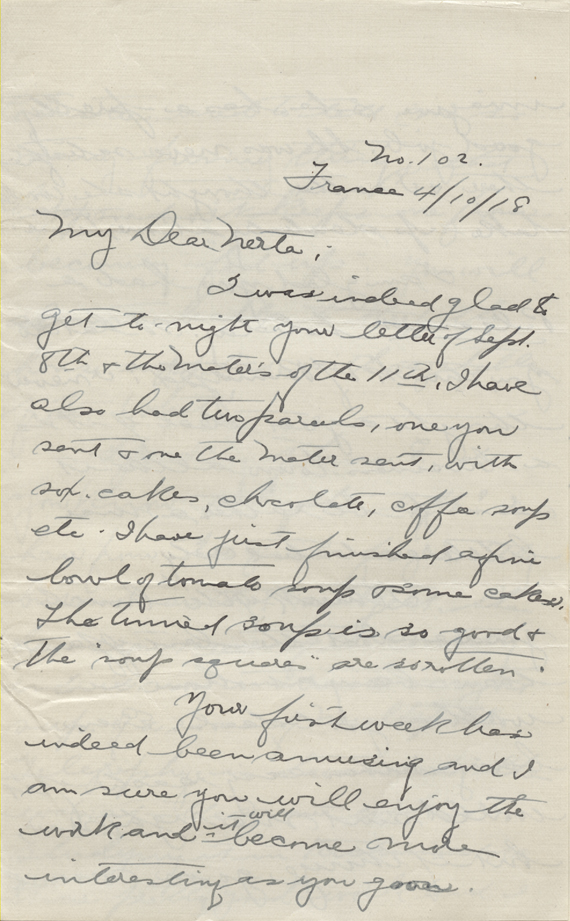 No. 102.
France 4/10/18
My Dear Nerta;
I was indeed glad to
get to-night your letter of Sept.
8th & the Mater's of the 11th. I have
also had two parcels, one you
sent & one the Mater sent, with
sox. cakes, chocolate, coffe soup
etc. I have just finished a fine
bowl of tomato soup & some cakes.
The tinned soup is so good &
the "soup squares" are so rotten.
Your first week has
indeed been amusing and I
am sure you will enjoy the
work and it will become more
interesting as you go on.